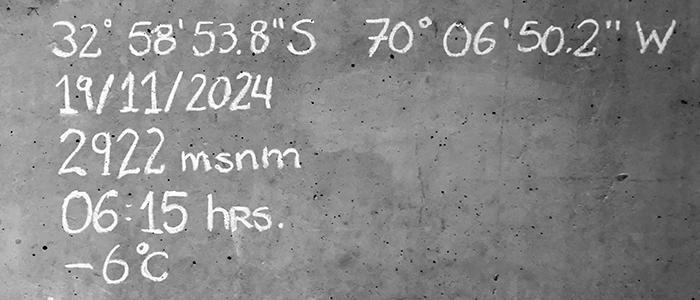 32° 58'53.8"S 70° 06'50.2" W
19/11/2024
2922 msnm
06:15 hRs.
-6°C